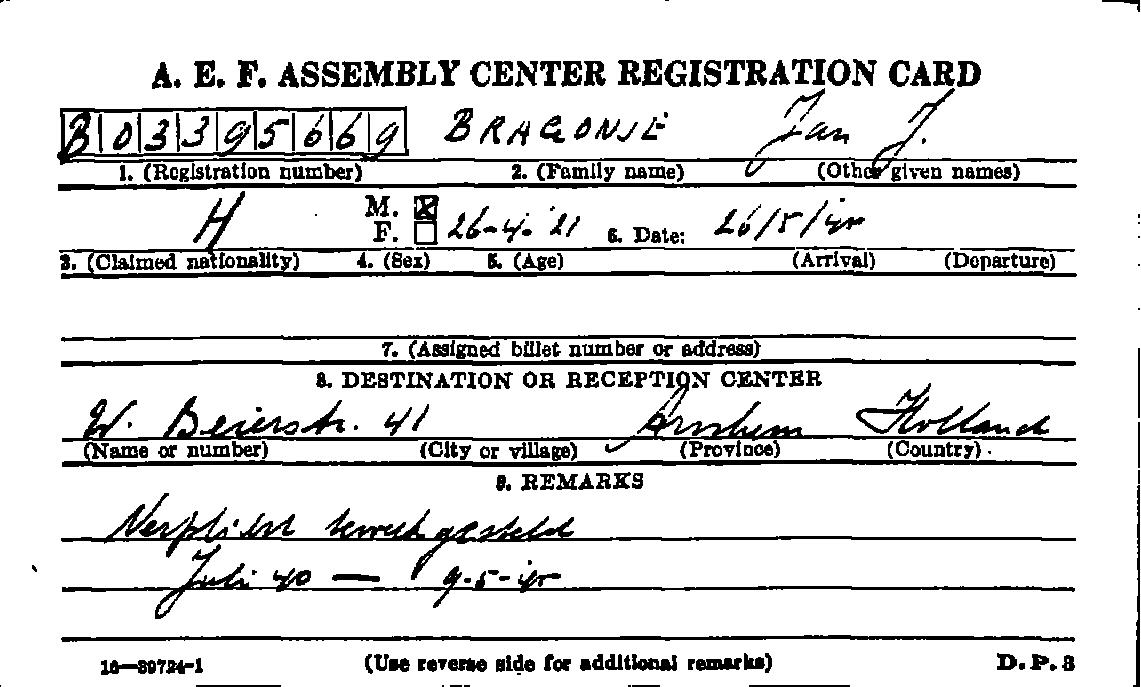 A. E. F. ASSEMBLY CENTER REGISTRATION CARD
B03395669 BRAGONJE Jan J.
1. (Registration number) 2. (Family name) (Other given names)
H M. ☒ F. ☐ 26-4-'21 6. Date: 26/5/45
3. (Claimed nationality) 4. (Sex) 5. (Age) (Arrival) (Departure)
7. (Assigned billet number or address)
8. DESTINATION OR RECEPTION CENTER
W. Beierstr. 41 Arnhem Holland
(Name or number) (City or village) (Province) (Country)
9. REMARKS
Verplicht tewerkgesteld
Juli 40 — 9-5-45
16—39724-1 (Use reverse side for additional remarks) D.P.3